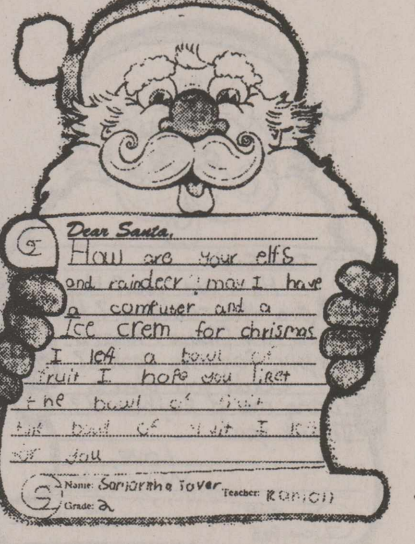 Dear Santa,
How are your elfs
and raindeer may I have
a computer and a
Ice crem for chrismas
I left a bowl of
fruit I hope you liket
the bowl of fruit
the bowl of fruit I
for you
Name: Teacher:
Grade: 2